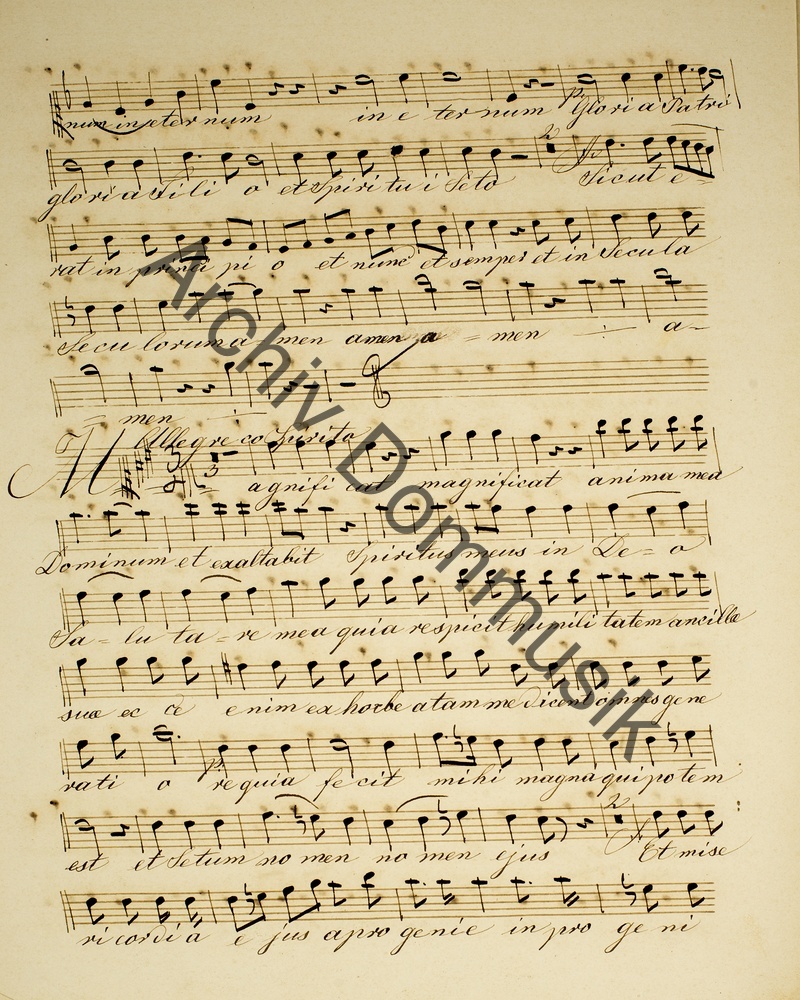 num in eter num in e ter num p Glori a Patri
glori a Fi li o et Spiri tu i Scto Sicut e-
rat in princi pi o et nunc et semper et in Secula
Secu lorum a - men amen a = men a-
= men
Allegro co Spirito
M agnifi cat magnificat anima mea
Dominum et exaltabit Spiritus meus in De = o
Sa - lu ta = re mea quia respicit humili tatem ancillæ
suæ ec ce enim ex hocbe atam me dicent omnes gene
rati o p re quia fe cit mihi magna qui po tem
est et Sctum no men no men ejus Et mise
ri cordi a e jus a pro genie in pro ge ni
Archiv Dommusik